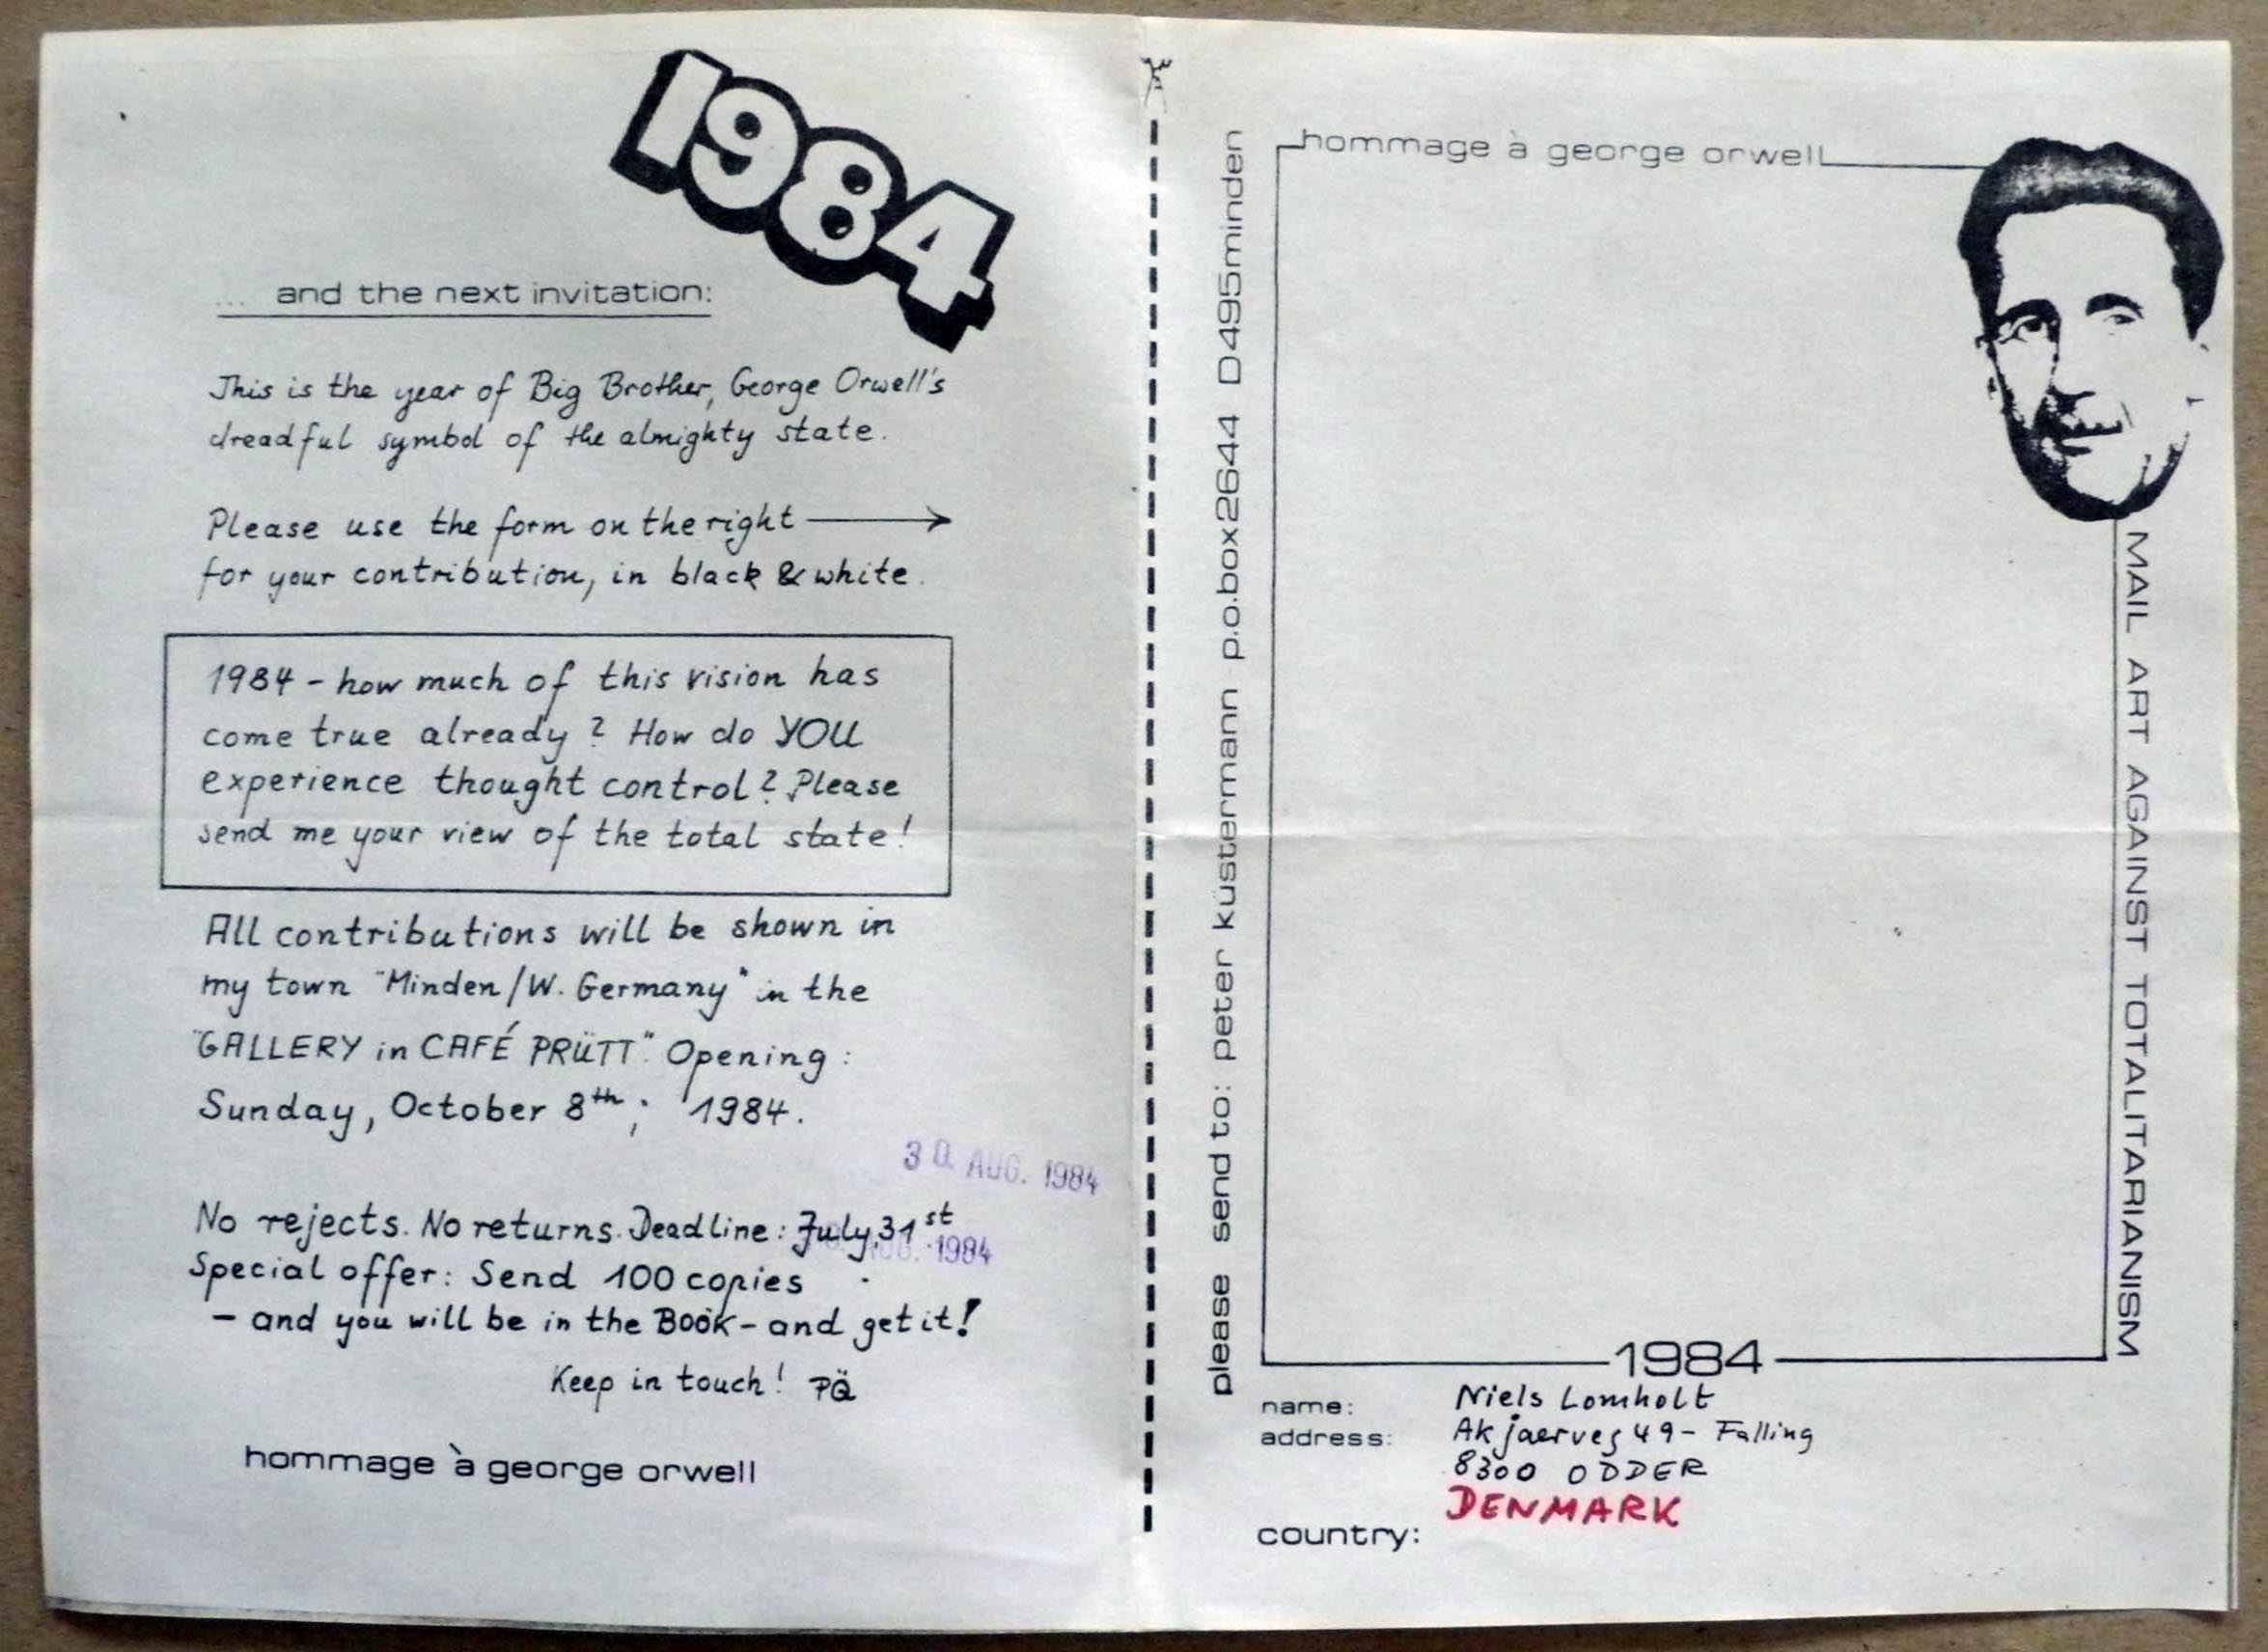 1984
... and the next invitation:
This is the year of Big Brother, George Orwell's
dreadful symbol of the almighty state.
Please use the form on the right →
for your contribution, in black & white.
1984 - how much of this vision has
come true already? How do YOU
experience thought control? Please
send me your view of the total state!
All contributions will be shown in
my town "Minden/W. Germany" in the
"GALLERY in CAFÉ PRÜTT". Opening:
Sunday, October 8th; 1984.
30. AUG. 1984
No rejects. No returns. Deadline: July, 31st
AUG. 1984
Special offer: Send 100 copies
- and you will be in the Book - and get it!
Keep in touch! PQ̈
hommage à george orwell
please send to: peter küstermann p.o.box2644 D495minden
hommage à george orwell
MAIL ART AGAINST TOTALITARIANISM
1984
name: Niels Lomholt
address: Akjaerveg 49 - Falling
8300 ODDER
DENMARK
country: